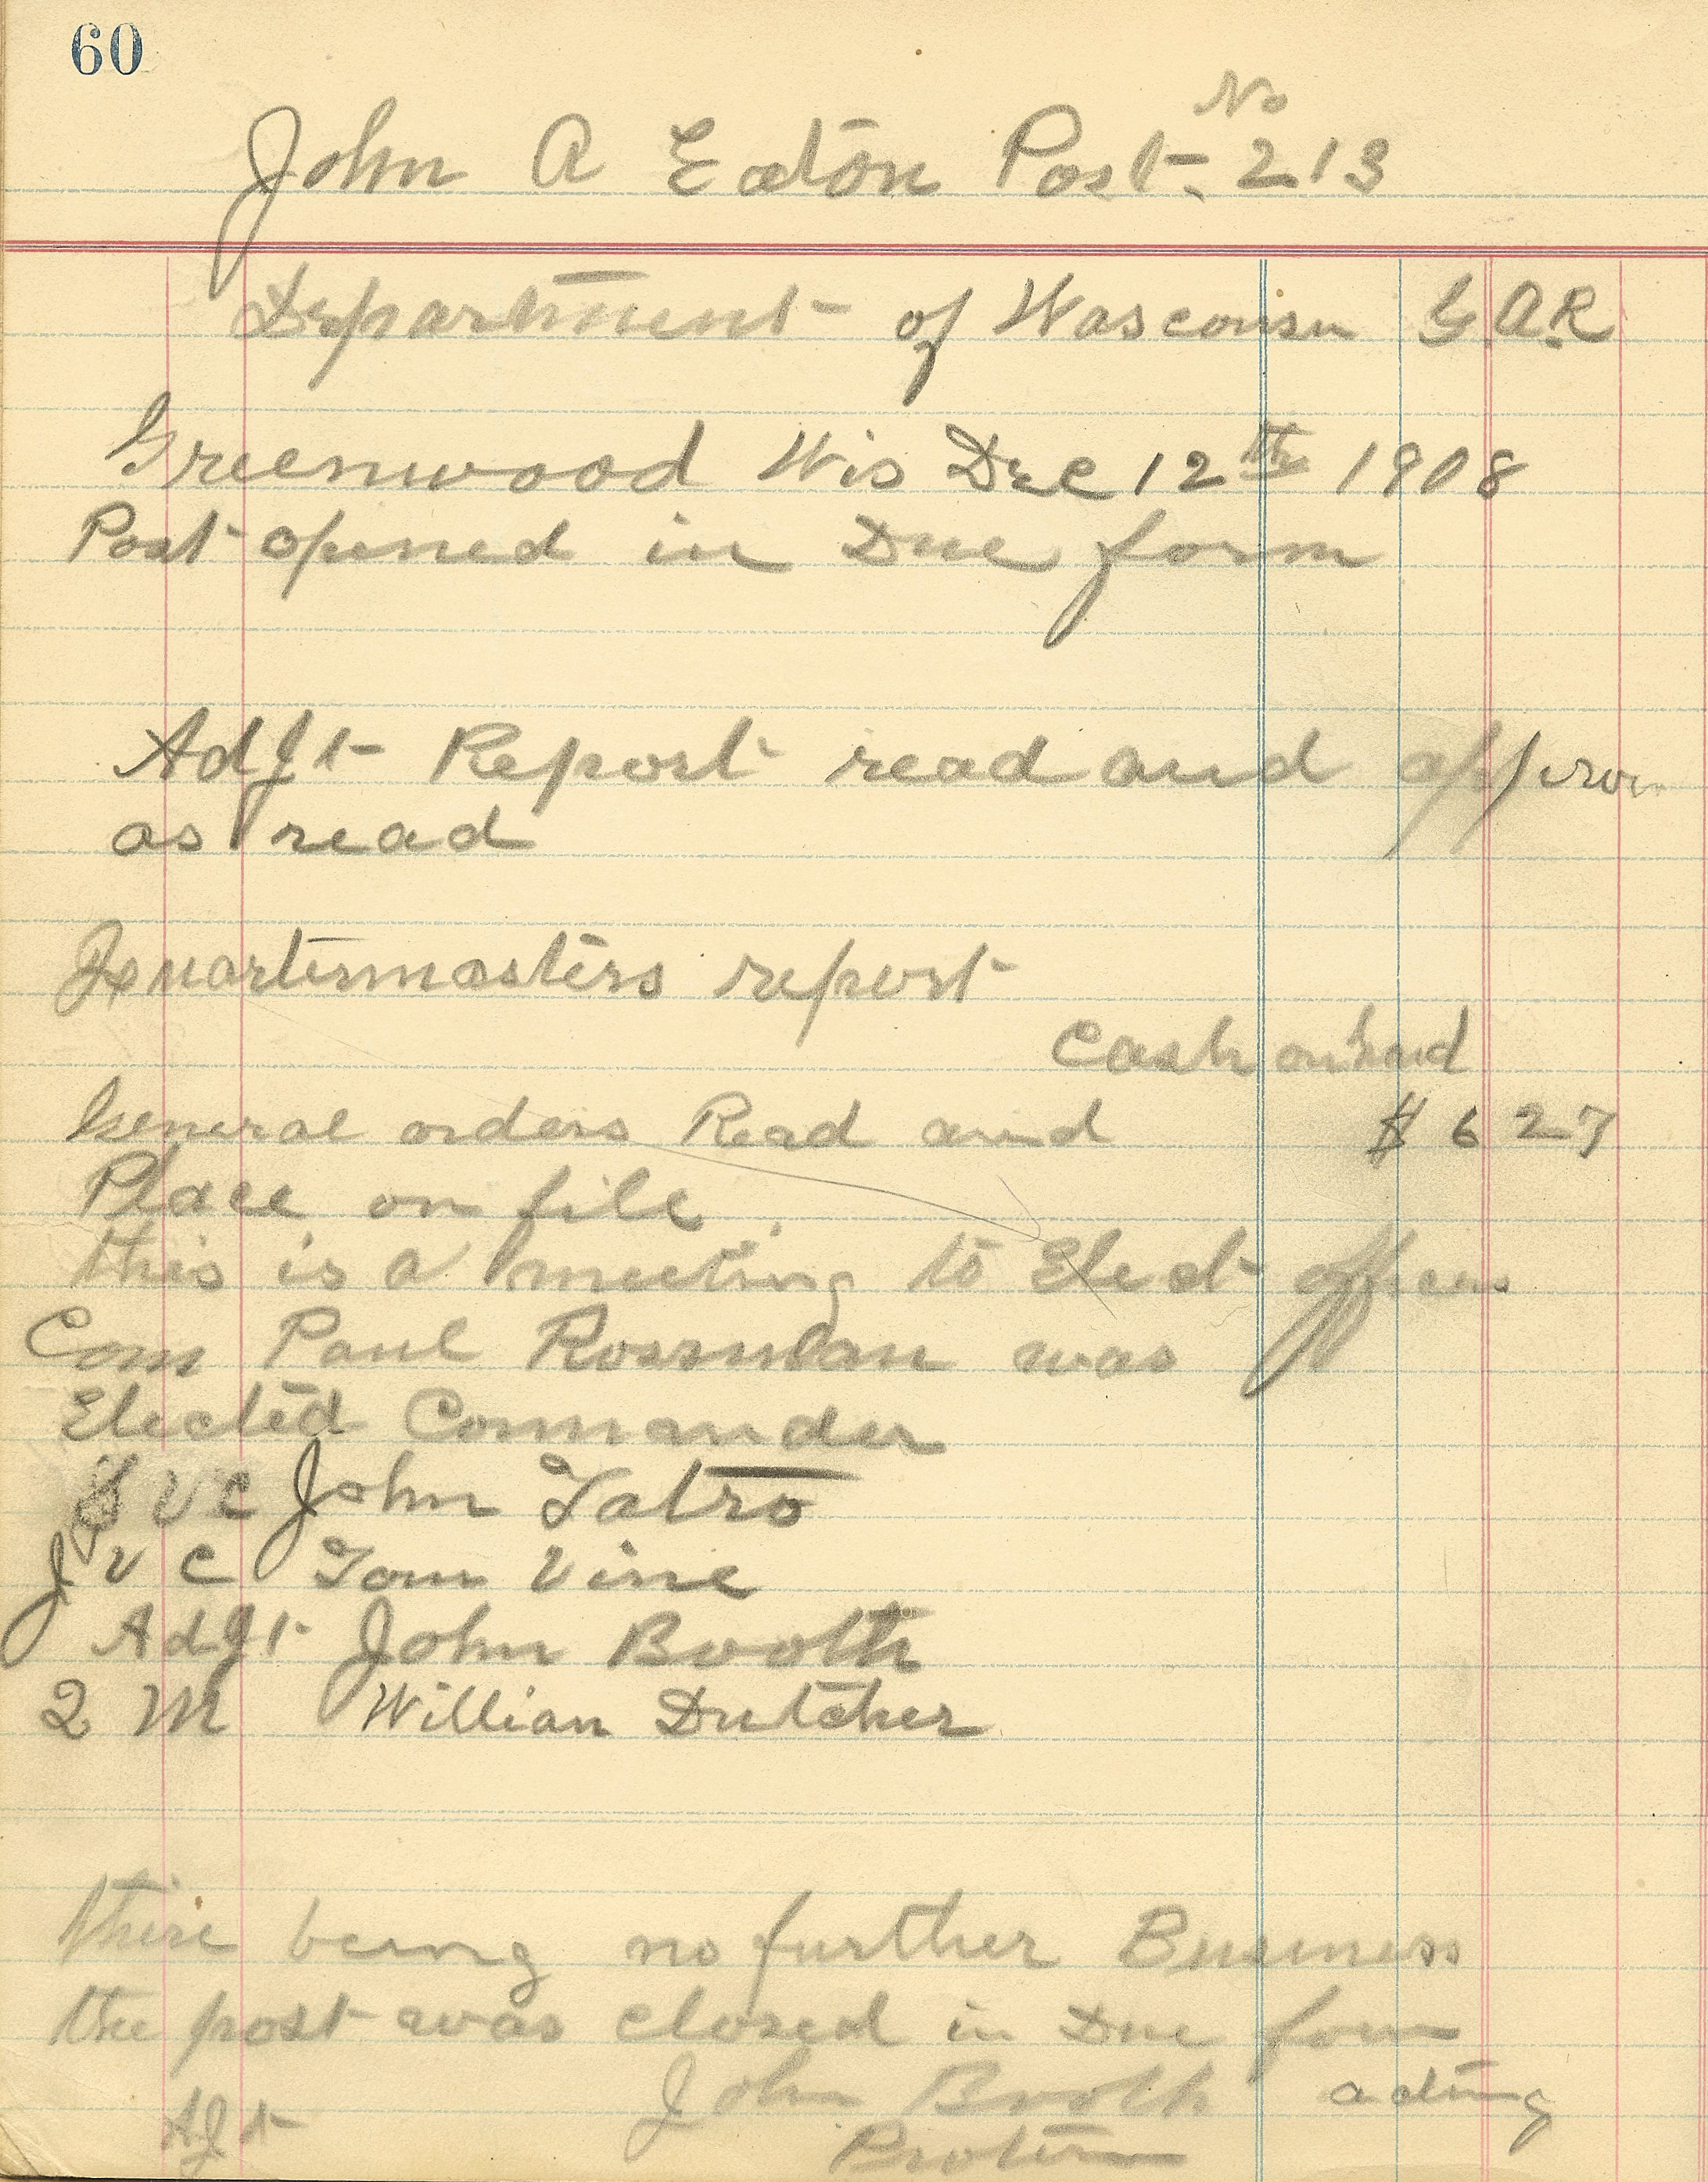 60
No
John A Eaton Post. 213
Department of Wasconsn G.A.R
Greenwood Wis Dec 12th 1908
Post opened in Due form
AdJt Report read and
as read
Quartermasters report
Cash on hand
General orders Read and $ 6 27
Place on file.
this is a meeting to Elect officers
Com Paul Rossman was
Elected Commander
S V C John Tatro
J V C Tom Vine
AdJt John Booth
Q M Willian Dutcher
there being no further Business
the post was closed in Due form
John Booth acting
AJt Protem